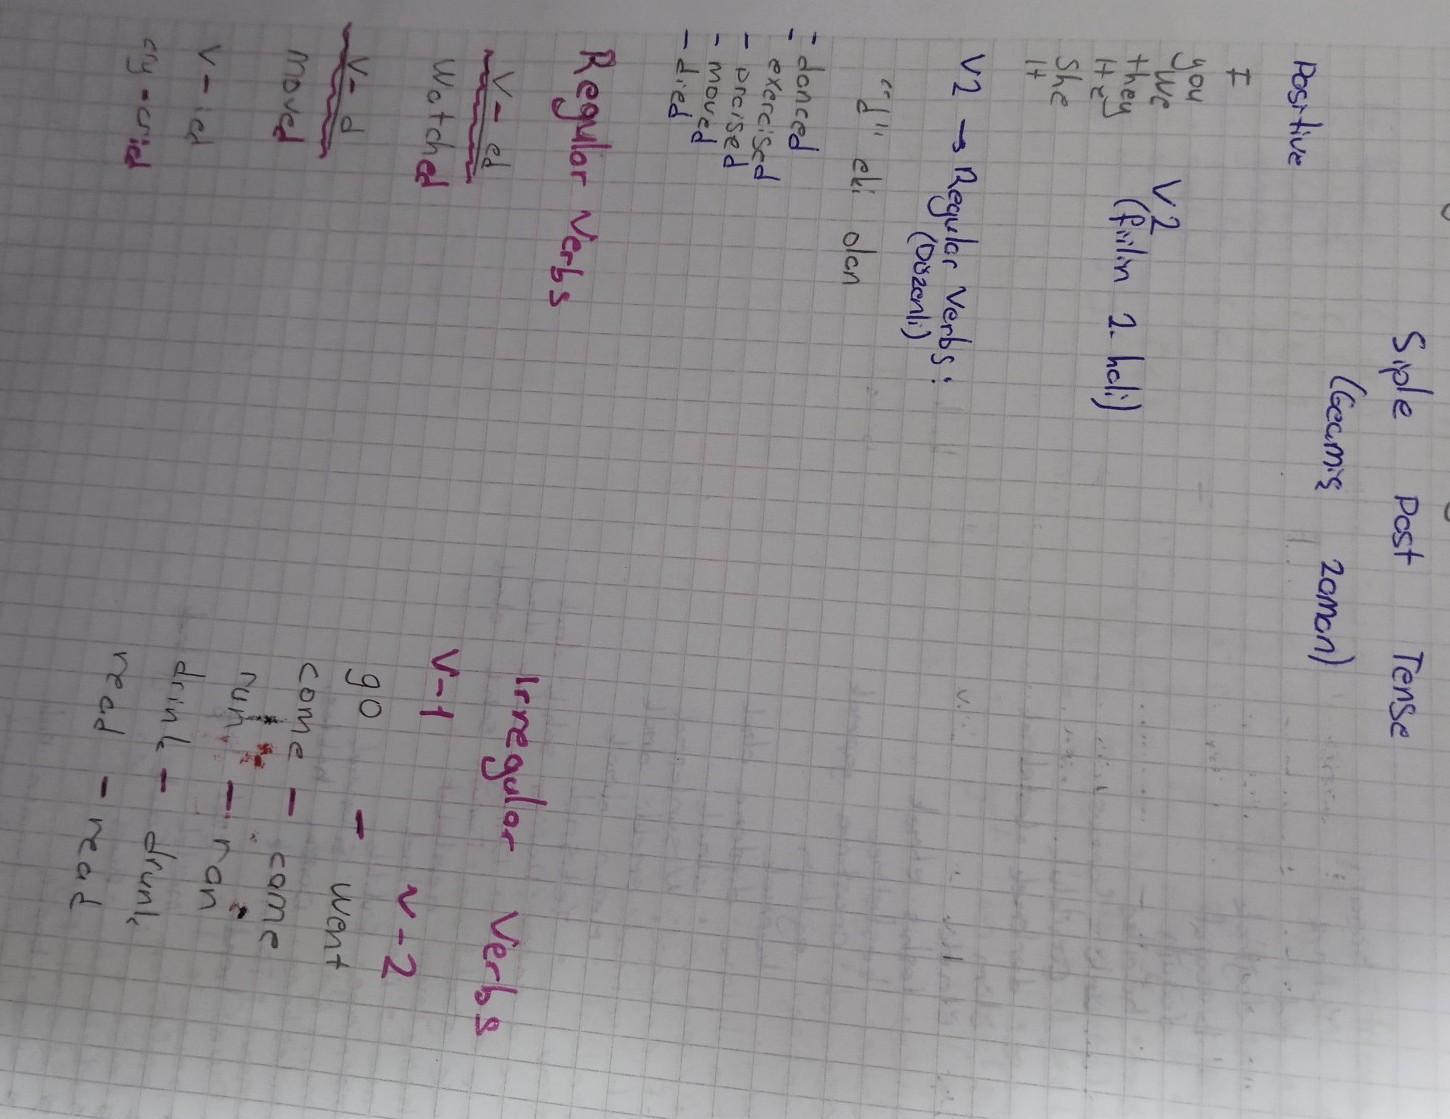 Siple Past Tense
(Gecmiş zaman)
Positive
I
you
we
they
He
She
It
V2
(fiilin 2. hali)
V2 → Regular Verbs:
(Düzenli)
"d" eki olan
- danced
- exercised
- moved
- died
Regular Verbs
V-ed
Watched
V-d
moved
V-ied
cry-cried
Irregular Verbs
V-1 V-2
go - went
come - came
run - ran
drink - drunk
read - read